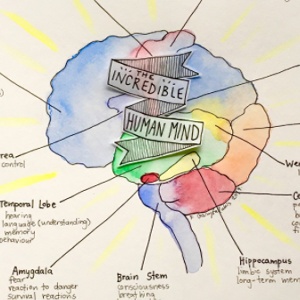 THE
INCREDIBLE
HUMAN MIND
control
Temporal Lobe
hearing
language (understanding)
memory
behaviour
Amygdala
fear
reaction to danger
survival reactions
Brain Stem
consciousness
breathing
Hippocampus
limbic system
long-term